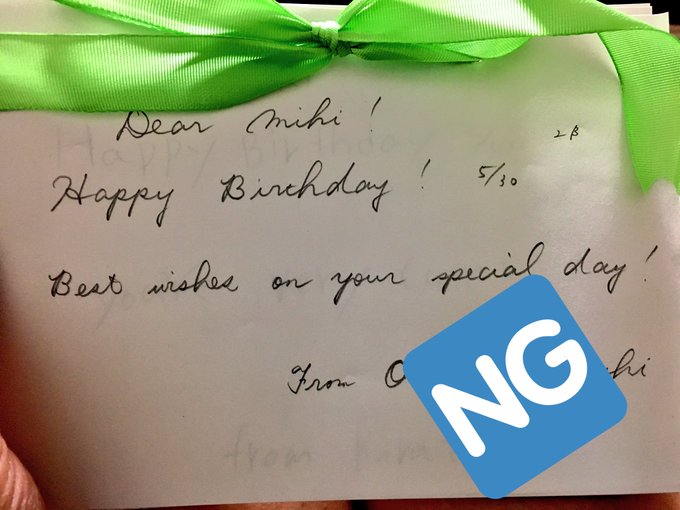 Dear Mihi!
2B
Happy Birthday! 5/30
Best wishes on your special day!
From
NG